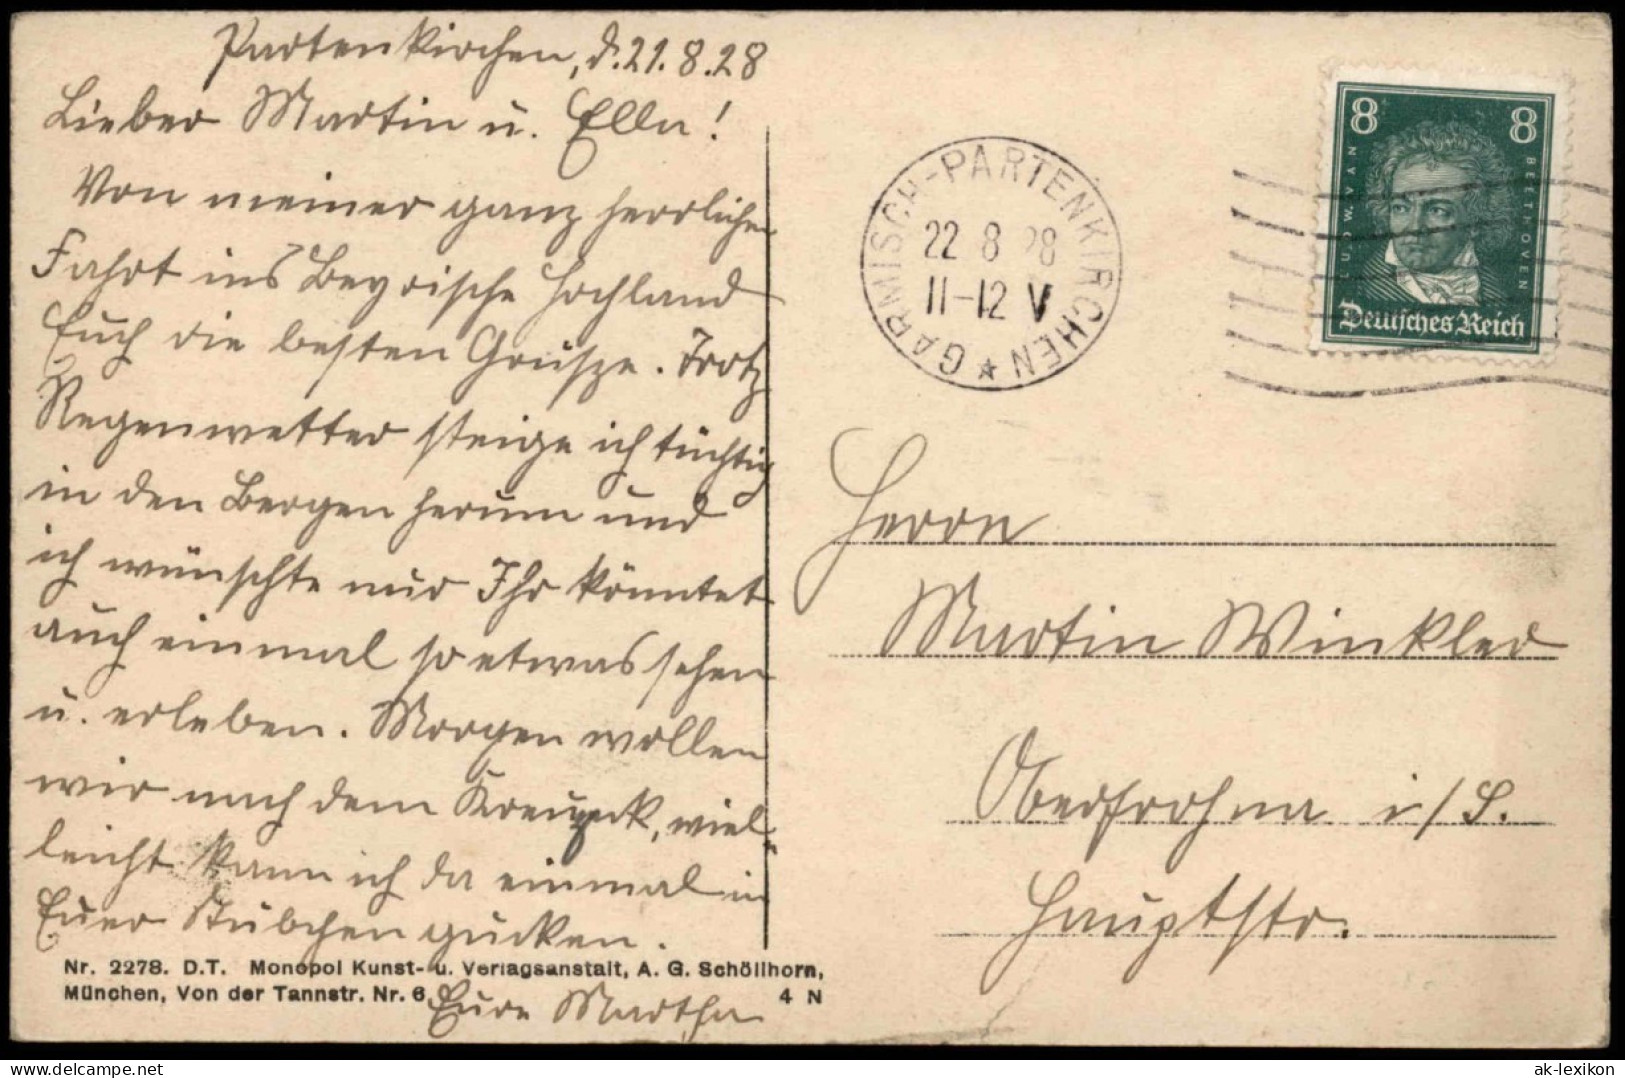 Partenkirchen, d. 21.8.28
Lieber Martin u. Ella!
Von meiner ganz herrlichen
Fahrt ins Bayrische Hochland
Euch die besten Grüsze. Trotz
Regenwetter steige ich tüchtig
in den Bergen herum und
ich wünschte nur Ihr könntet
auch einmal so etwas sehen
u. erleben. Morgen wollen
wir nach dem Kreuzeck, viel-
leicht kann ich da einmal in
Euer Stübchen gucken.
Eure Martha
Nr. 2278. D.T. Monopol Kunst- u. Verlagsanstalt, A. G. Schöllhorn,
München, Von der Tannstr. Nr. 6
4 N
GARMISCH-PARTENKIRCHEN
22 8 28
11-12 V
8 8
LUDW. VAN
BEETHOVEN
Deutsches Reich
Herrn
Martin Winkler
Oberfrohna i/S.
Hauptstr.
ak-lexikon